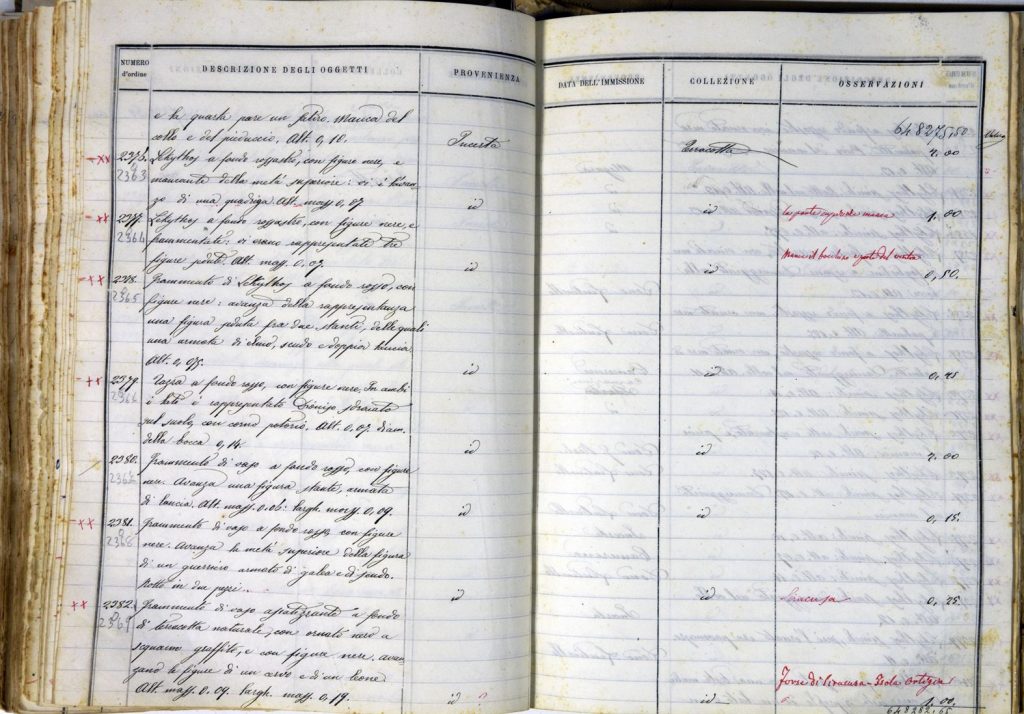 NUMERO
d'ordine
DESCRIZIONE DEGLI OGGETTI
PROVENIENZA
DATA DELL'IMMISSIONE
COLLEZIONE
OSSERVAZIONI
64 8275,50
e la quarta pare un satiro. Manca del
collo e del pieduccio. Alt. 0,10.
Incerta
Terracotta
2.00
2363
Lekythos a fondo rossastro, con figure nere, e
mancante della metà superiore: vi è l'avan-
zo di una quadriga. Alt. mass. 0,07
id
id
la parte superiore manca
1.00
2377.
2364
Lekythos a fondo rossastro, con figure nere, e
frammentato: vi erano rappresentate tre
figure sedute. Alt. mass. 0,07.
id
id
Manca il bocchino e parte del ventre
0,50.
2378.
2365
Frammento di Lekythos a fondo rosso, con
figure nere: avanza della rappresentanza
una figura seduta fra due stanti, delle quali
una armata di elmo, scudo e doppia lancia.
Alt. 0,075.
id
id
0,45
2379.
2366
Tazza a fondo rosso, con figure nere. In ambi
i lati è rappresentato Dioniso sdraiato
sul suolo, con corno potorio. Alt. 0,07. diam.
della bocca 0,14.
id
id
2.00
2380.
2367
Frammento di vaso a fondo rosso, con figure
nere. Avanza una figura stante, armata
di lancia. Alt. mass. 0,06: largh. mass. 0,09.
id
id
0,15.
2381.
2368
Frammento di vaso a fondo rosso, con figure
nere. Avanza la metà superiore della figura
di un guerriero armato di galea e di scudo.
Rotto in due pezzi.
id
id
Siracusa
0,25.
2382.
2369
Frammento di vaso asiatizzante a fondo
di terracotta naturale, con ornato nero a
squame graffito, e con figure nere. Avan-
zano le figure di un cervo e di un leone
Alt. mass. 0,09. largh. mass. 0,19.
id ?
id
Forse di Siracusa - Isola Ortigia
1.00.
648282,65